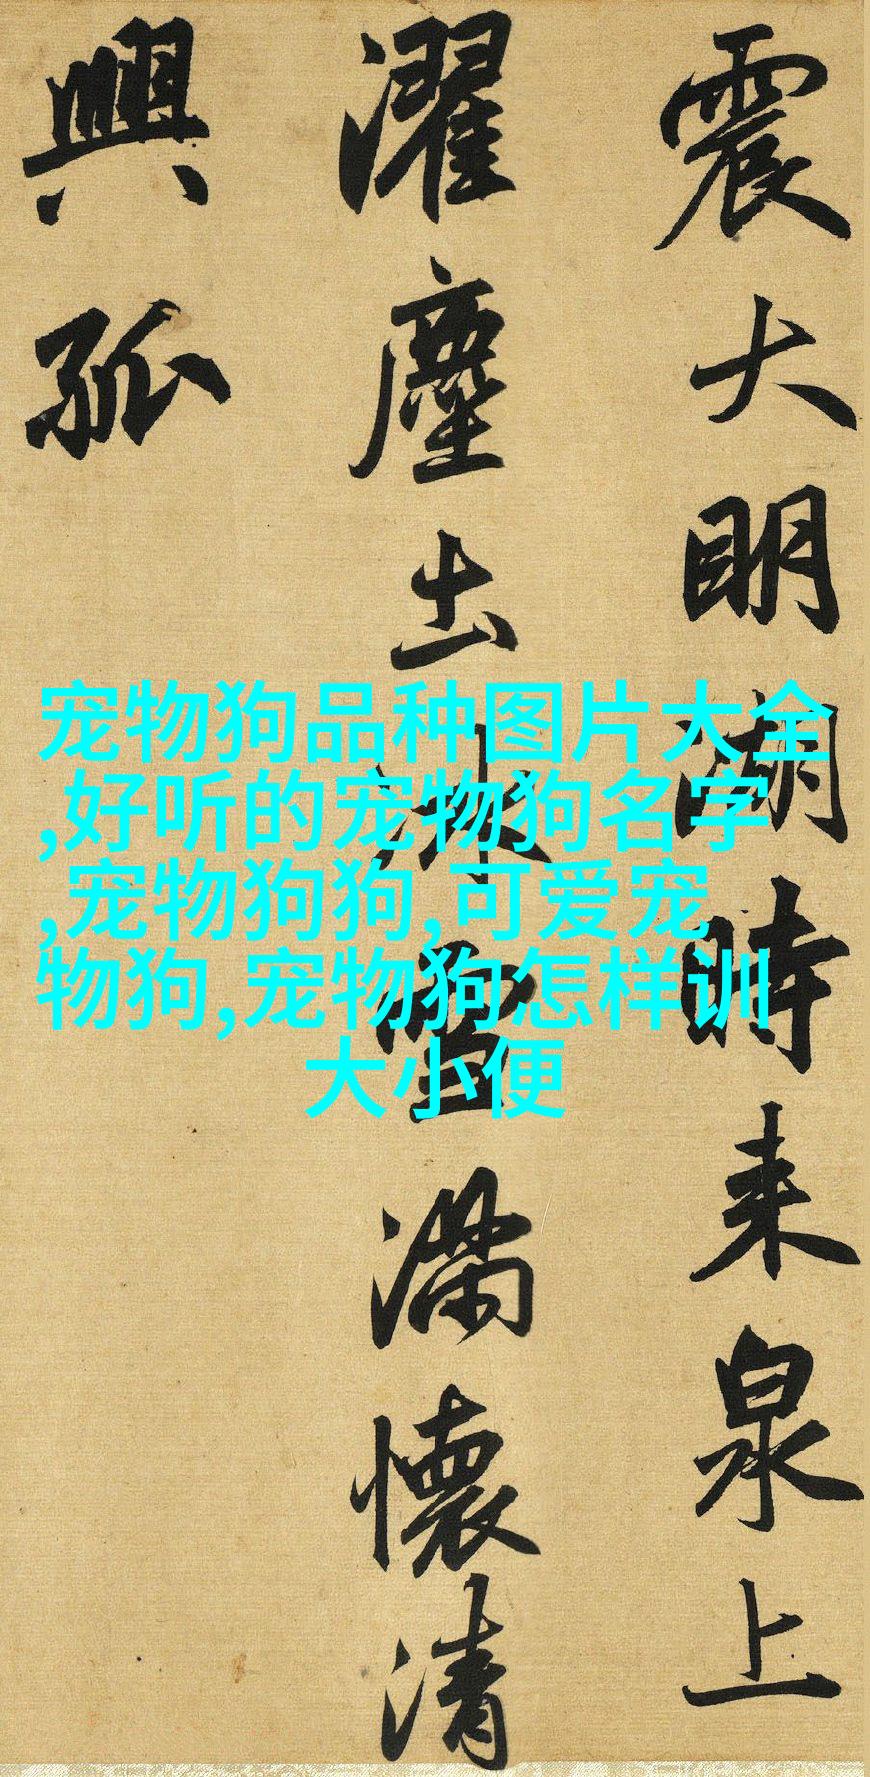 震大明湖時来泉上
濯塵出冰雪滿懷清
興孤
宠物狗品种图片大全
,好听的宠物狗名字
,宠物狗狗,可爱宠
物狗,宠物狗怎样训
大小便